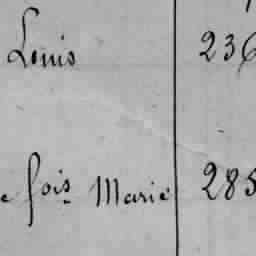 Louis 236
e fois. Marie 285